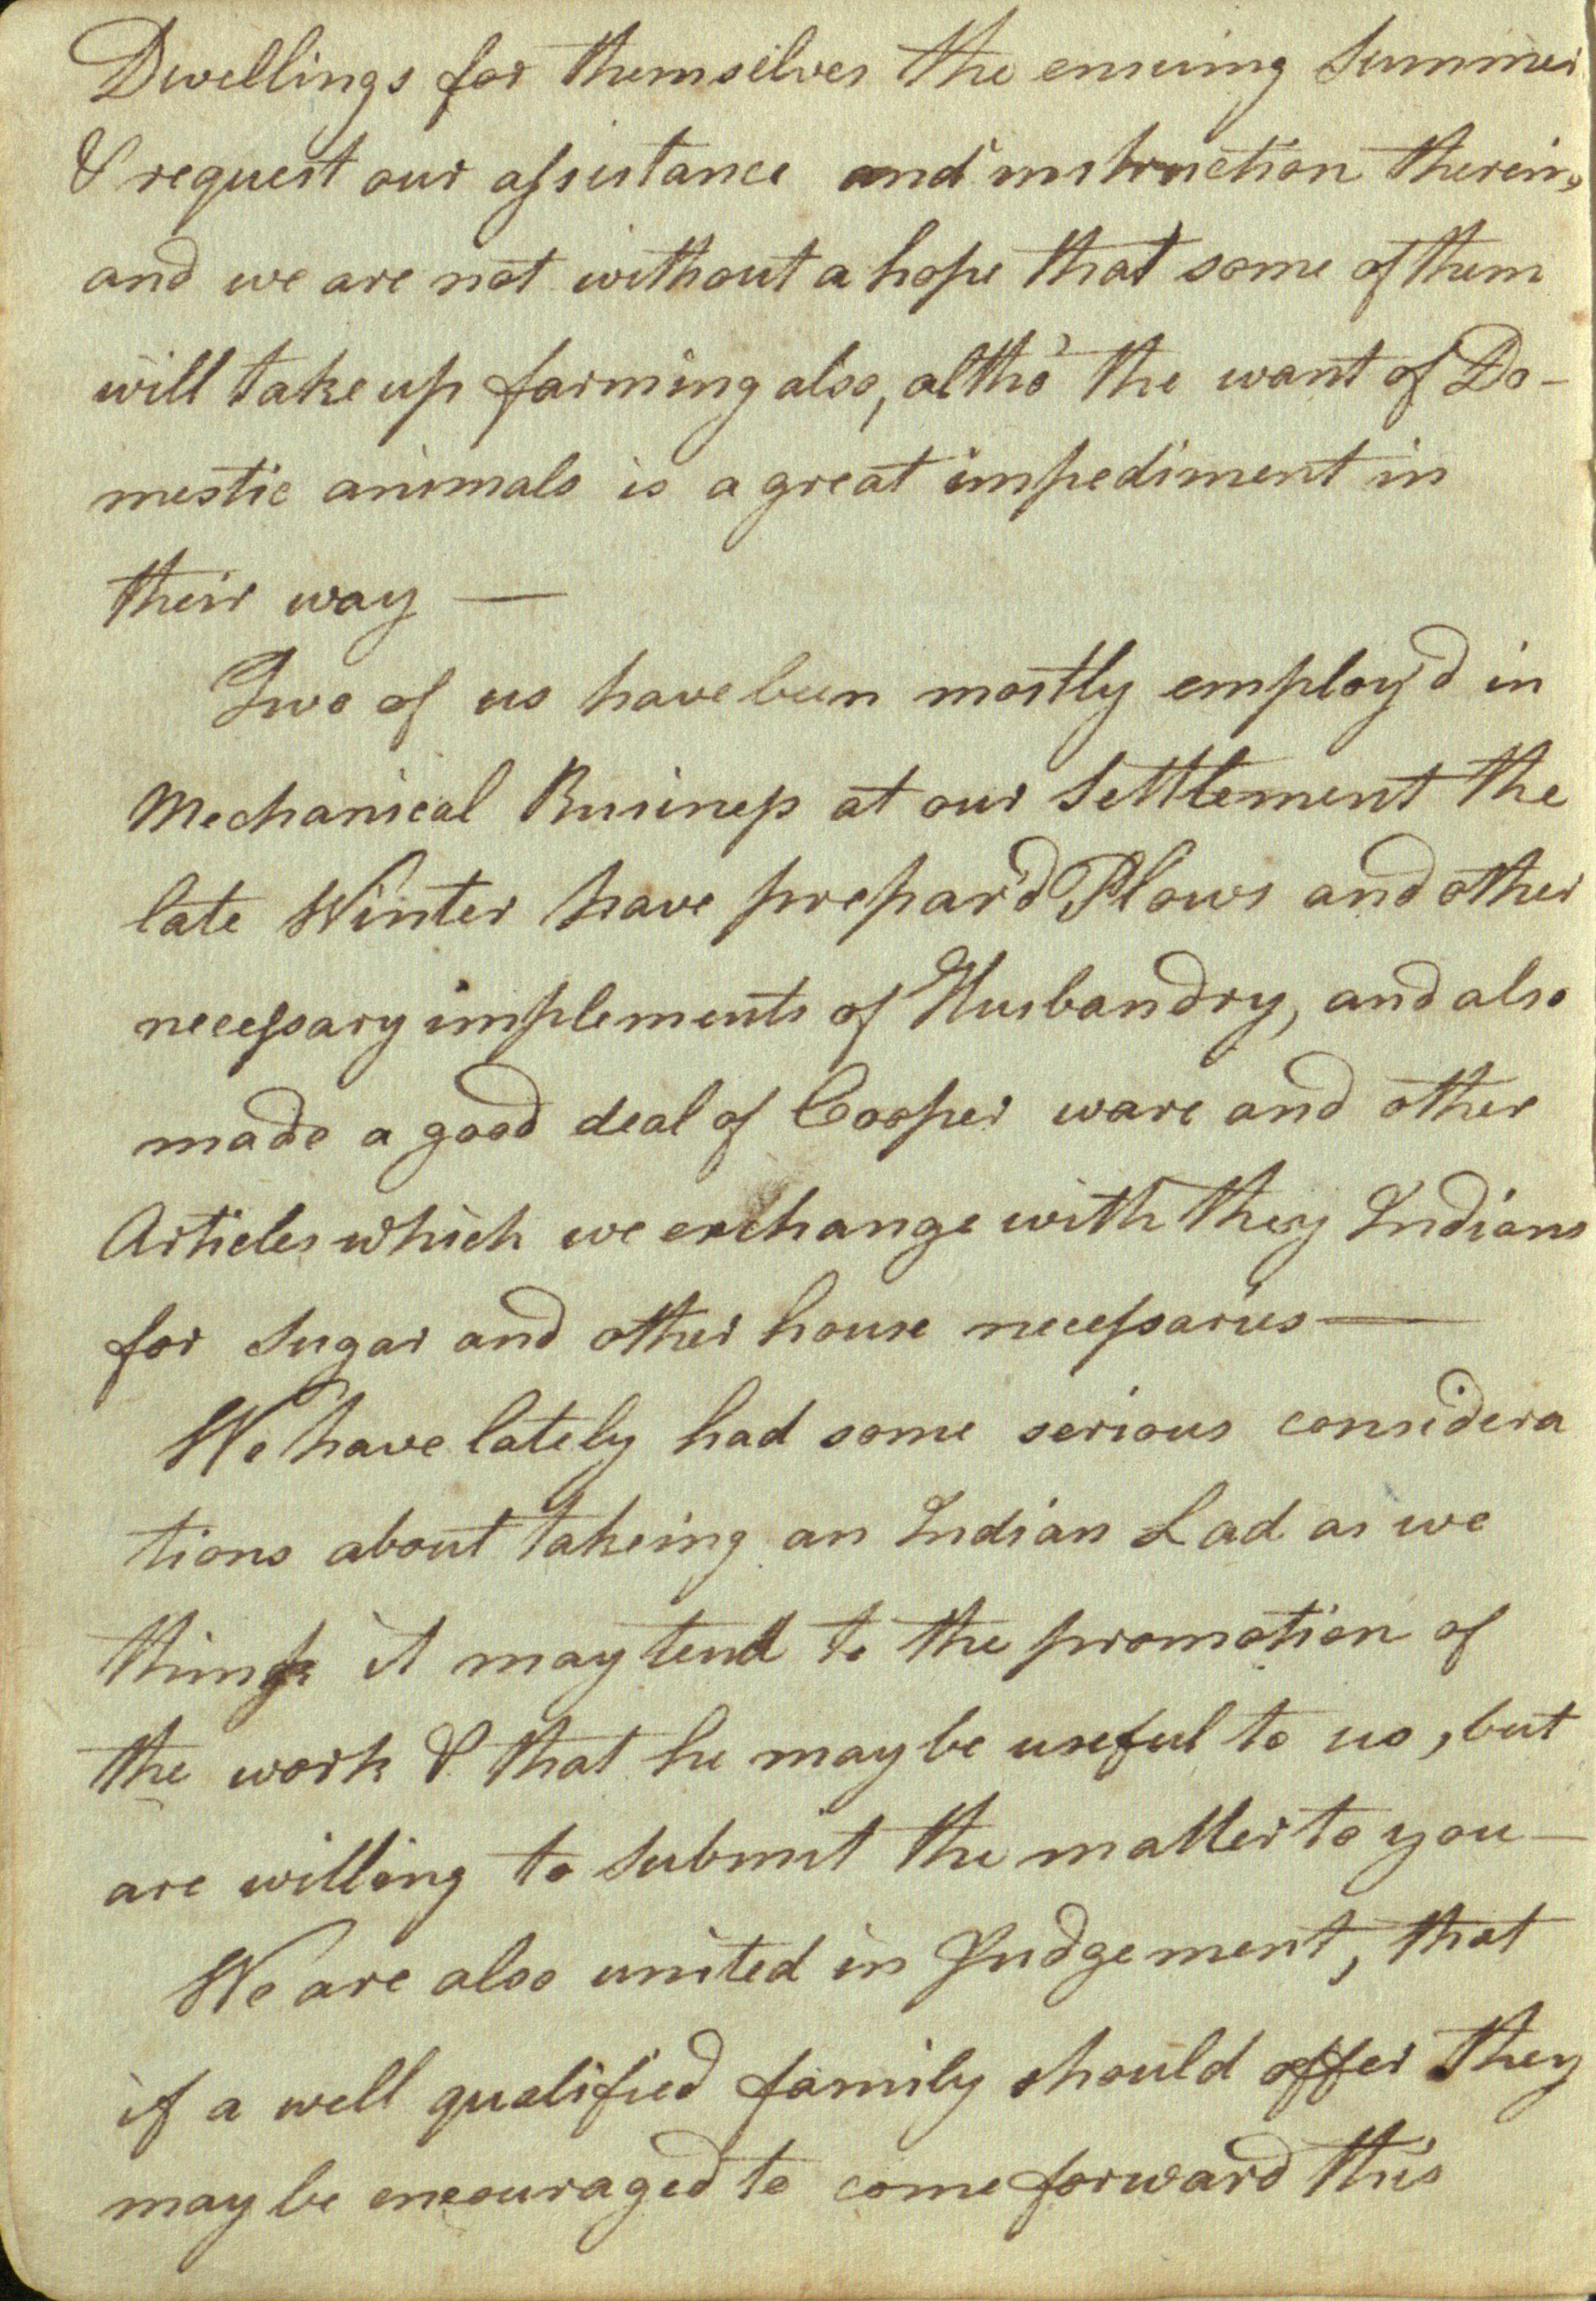 Dwellings for themselves the ensuing Summer
& request our assistance and instruction therein,
and we are not without a hope that some of them
will take up farming also, altho' the want of Do-
mestic animals is a great impediment in
their way —
Two of us have been mostly employ'd in
Mechanical Business at our Settlement the
late Winter have prepar'd Plows and other
necessary implements of Husbandry, and also
made a good deal of Cooper ware and other
Articles which we exchange with they Indians
for Sugar and other house necessaries —
We have lately had some serious considera
tions about takeing an Indian Lad as we
think it may tend to the promotion of
the work & that he may be useful to us, but
are willing to submit the matter to you —
We are also united in Judgement, that
if a well qualified family should offer they
may be encouraged to come forward this